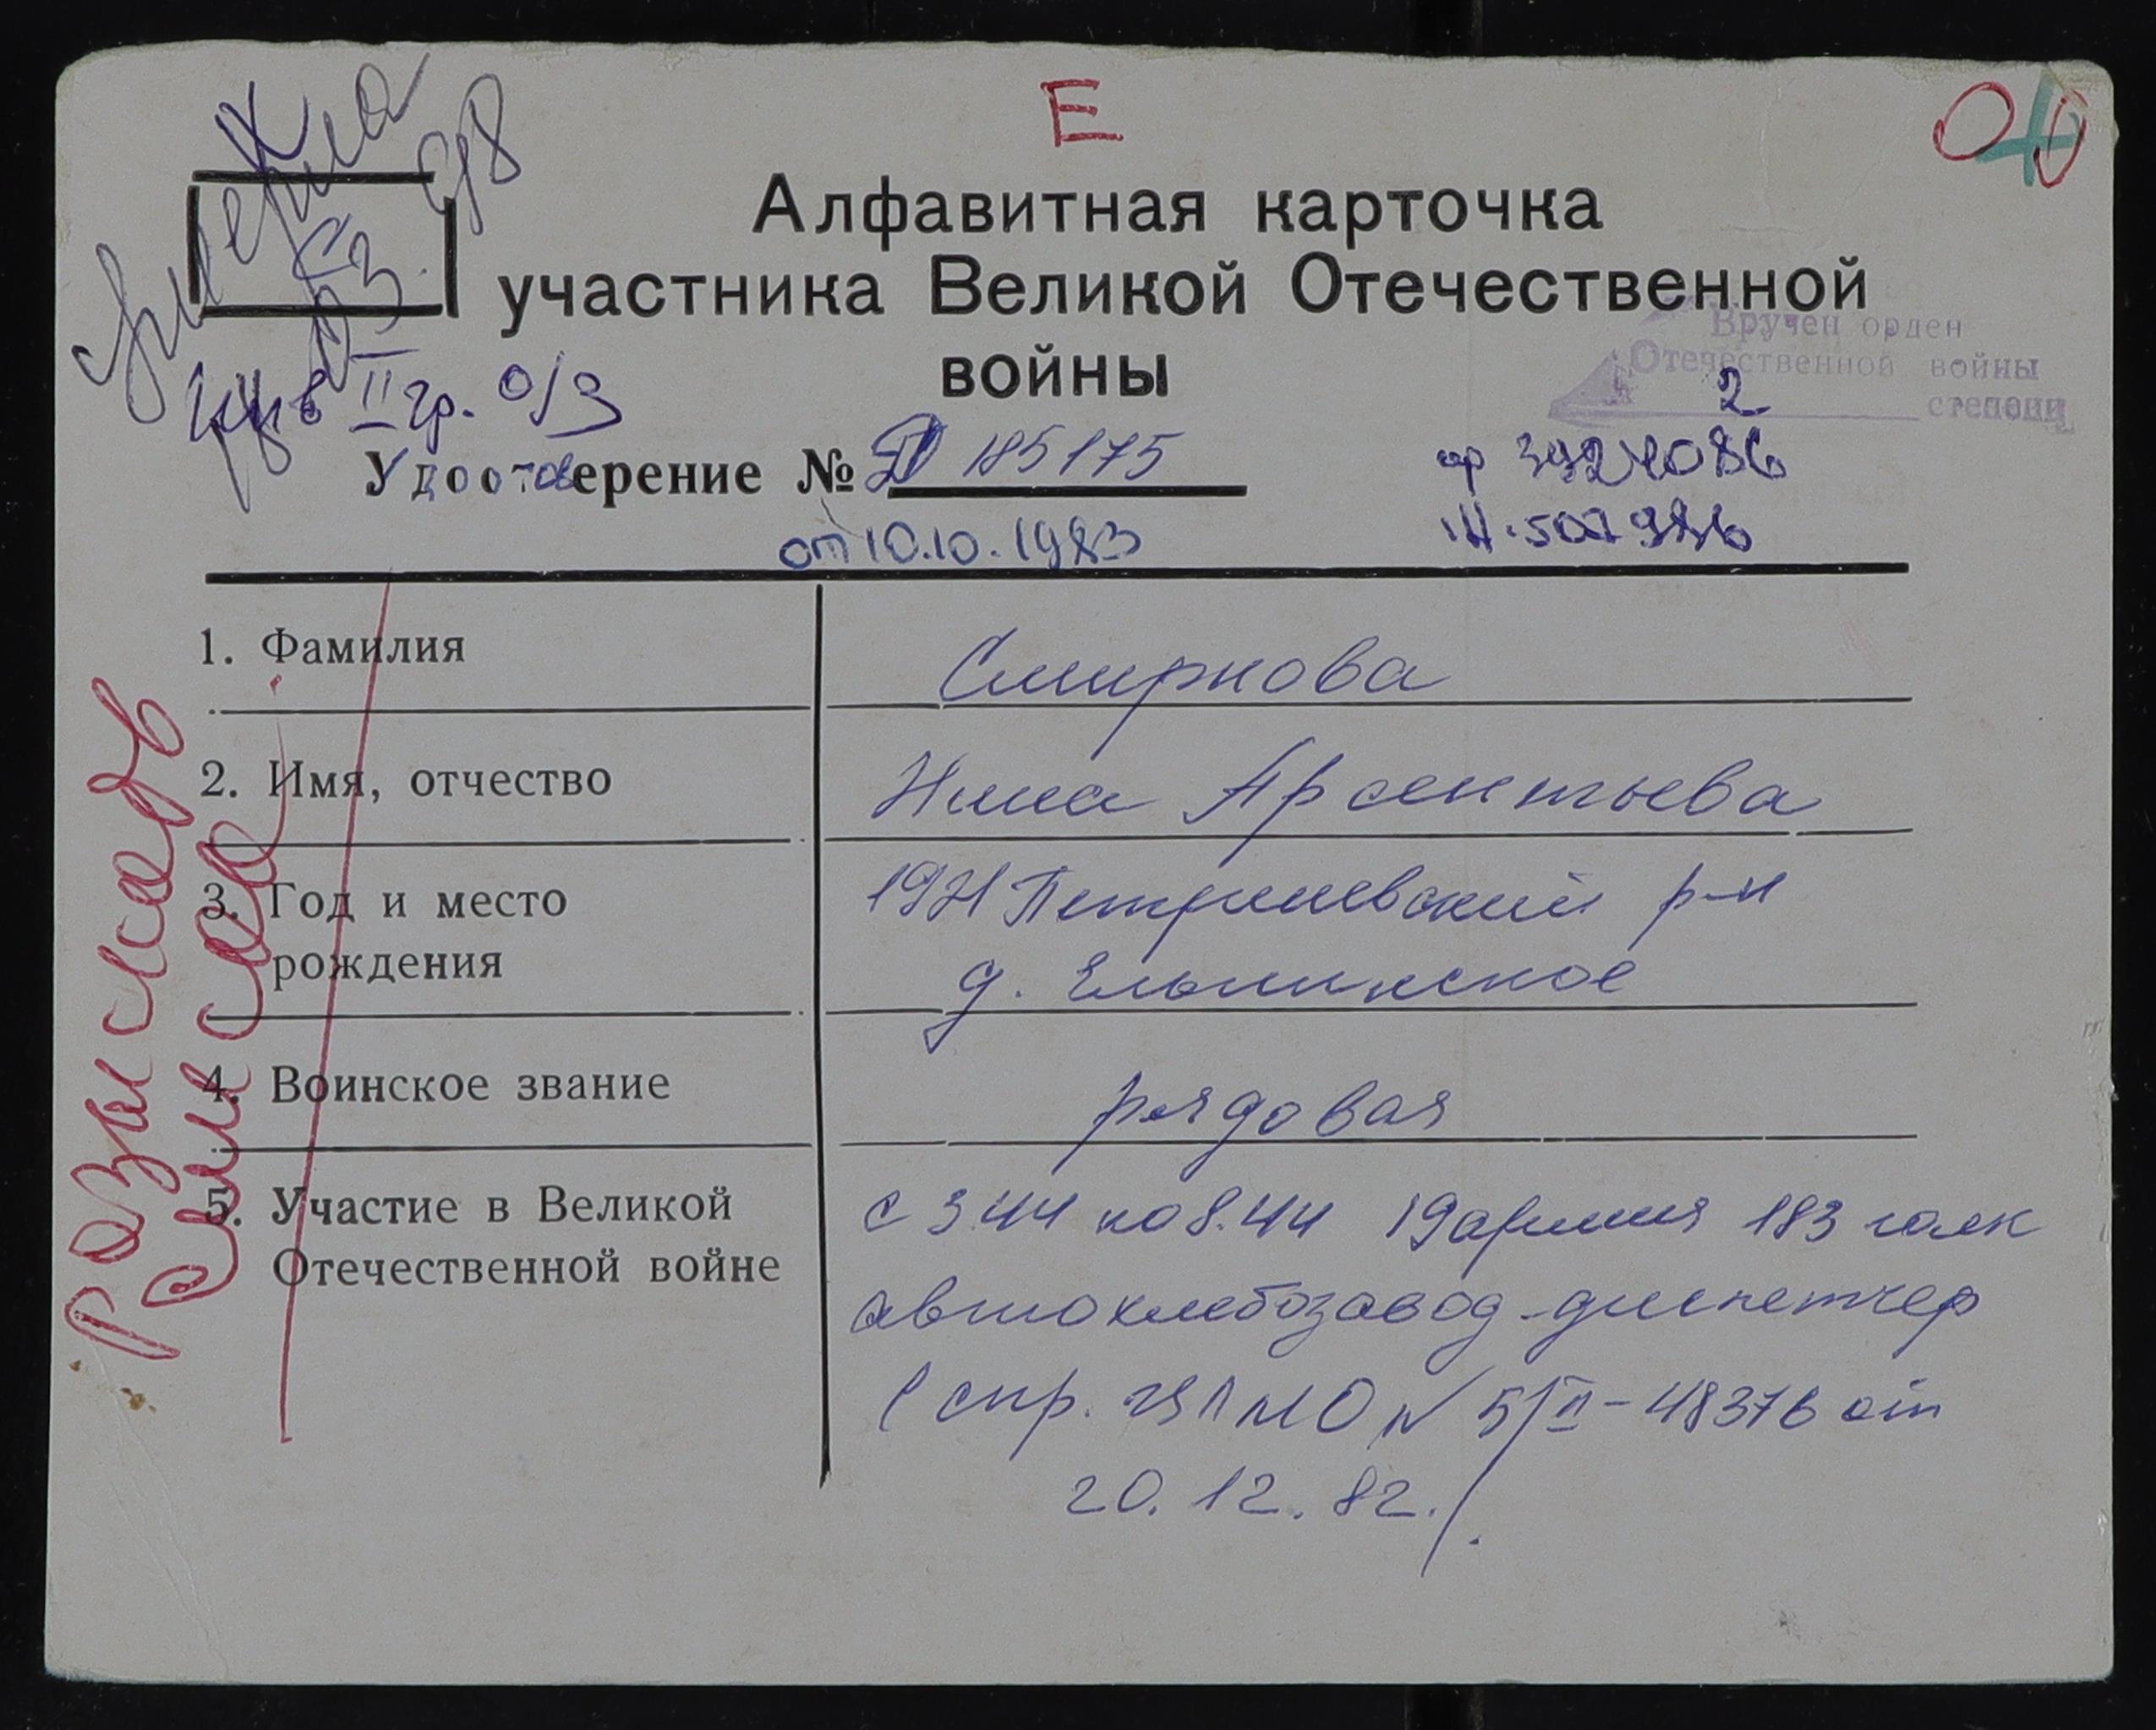 Е
Алфавитная карточка
участника Великой Отечественной
войны
Вручен орден
Отечественной войны
2 степени
умерла
03 98
инв II гр. о/з
Удостоверение № Д 185175
от 10.10.1983
ор 3924086
1. Фамилия Смирнова
2. Имя, отчество Нина Арсентьева
3. Год и место рождения 1921 Петриневский р-н
д. Ельнинское
4. Воинское звание рядовая
5. Участие в Великой Отечественной войне с 3.44 по 8.44 19 армия 183 полк
автохлебозавод - диспетчер
(спр. ЦАМО N 5/II-48376 от
20.12.82.).
снята